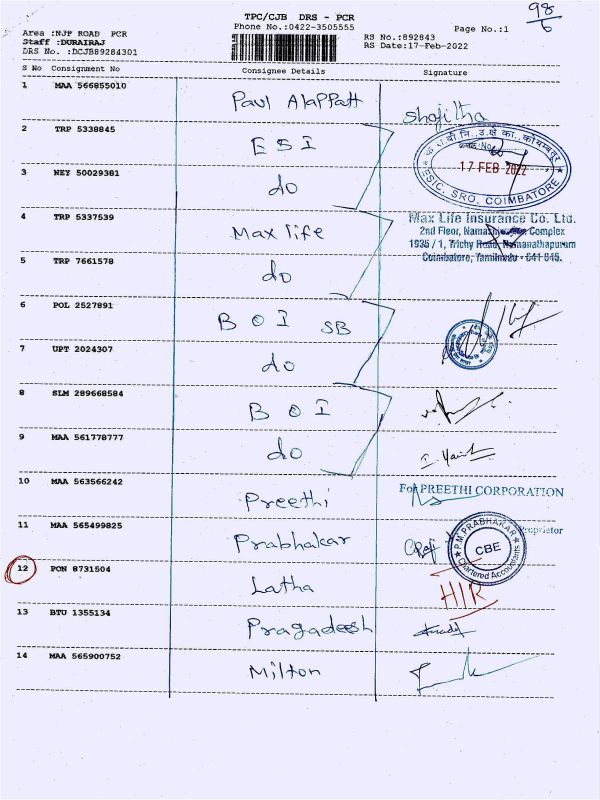 98/6
TPC/CJB DRS - PCR
Phone No.:0422-3505555
Page No.:1
Area :NJF ROAD PCR
Staff :DURAIRAJ
DRS No. :DCJB89284301
RS No.:892843
RS Date:17-Feb-2022
S No Consignment No Consignee Details Signature
1 MAA 566855010 Paul Alappatt Shajitha
2 TRP 5338845 ESI
3 NEY 50029381 do
17 FEB 2022
ESIC, SRO, COIMBATORE
4 TRP 5337539 Max life
Max Life Insurance Co. Ltd.
2nd Floor, Complex
1935 / 1, Trichy Road, Ramanathapuram
Coimbatore, Tamilnadu - 641 045.
5 TRP 7661578 do
6 POL 2527891 BOI SB
7 UPT 2024307 do
8 SLM 289668584 BOI
9 MAA 561778777 do
10 MAA 563566242 Preethi
For PREETHI CORPORATION
Proprietor
11 MAA 565499825 Prabhakar
P.M. PRABHAKAR
CBE
Chartered Accountants
12 PON 8731504 Latha HIR
13 BTU 1355134 Pragadeesh
14 MAA 565900752 Milton